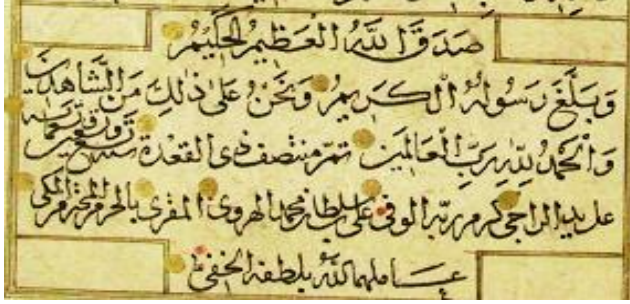 صَدَقَ اللَّهُ العَظِيمُ الحَكِيمُ
وَبَلَّغَ رَسُولُهُ الكَرِيمُ وَنَحْنُ عَلَى ذَلِكَ مِنَ الشَّاهِدِينَ
وَالحَمْدُ لِلَّهِ رَبِّ العَالَمِينَ منتصف ذى القعدة سنة
على يد الراجى كرم ربّه الوفى على بن سلطان محمد الهروى المقرى بالحرم المحترم المكى
عاملهما اللّه بلطفه الخفى